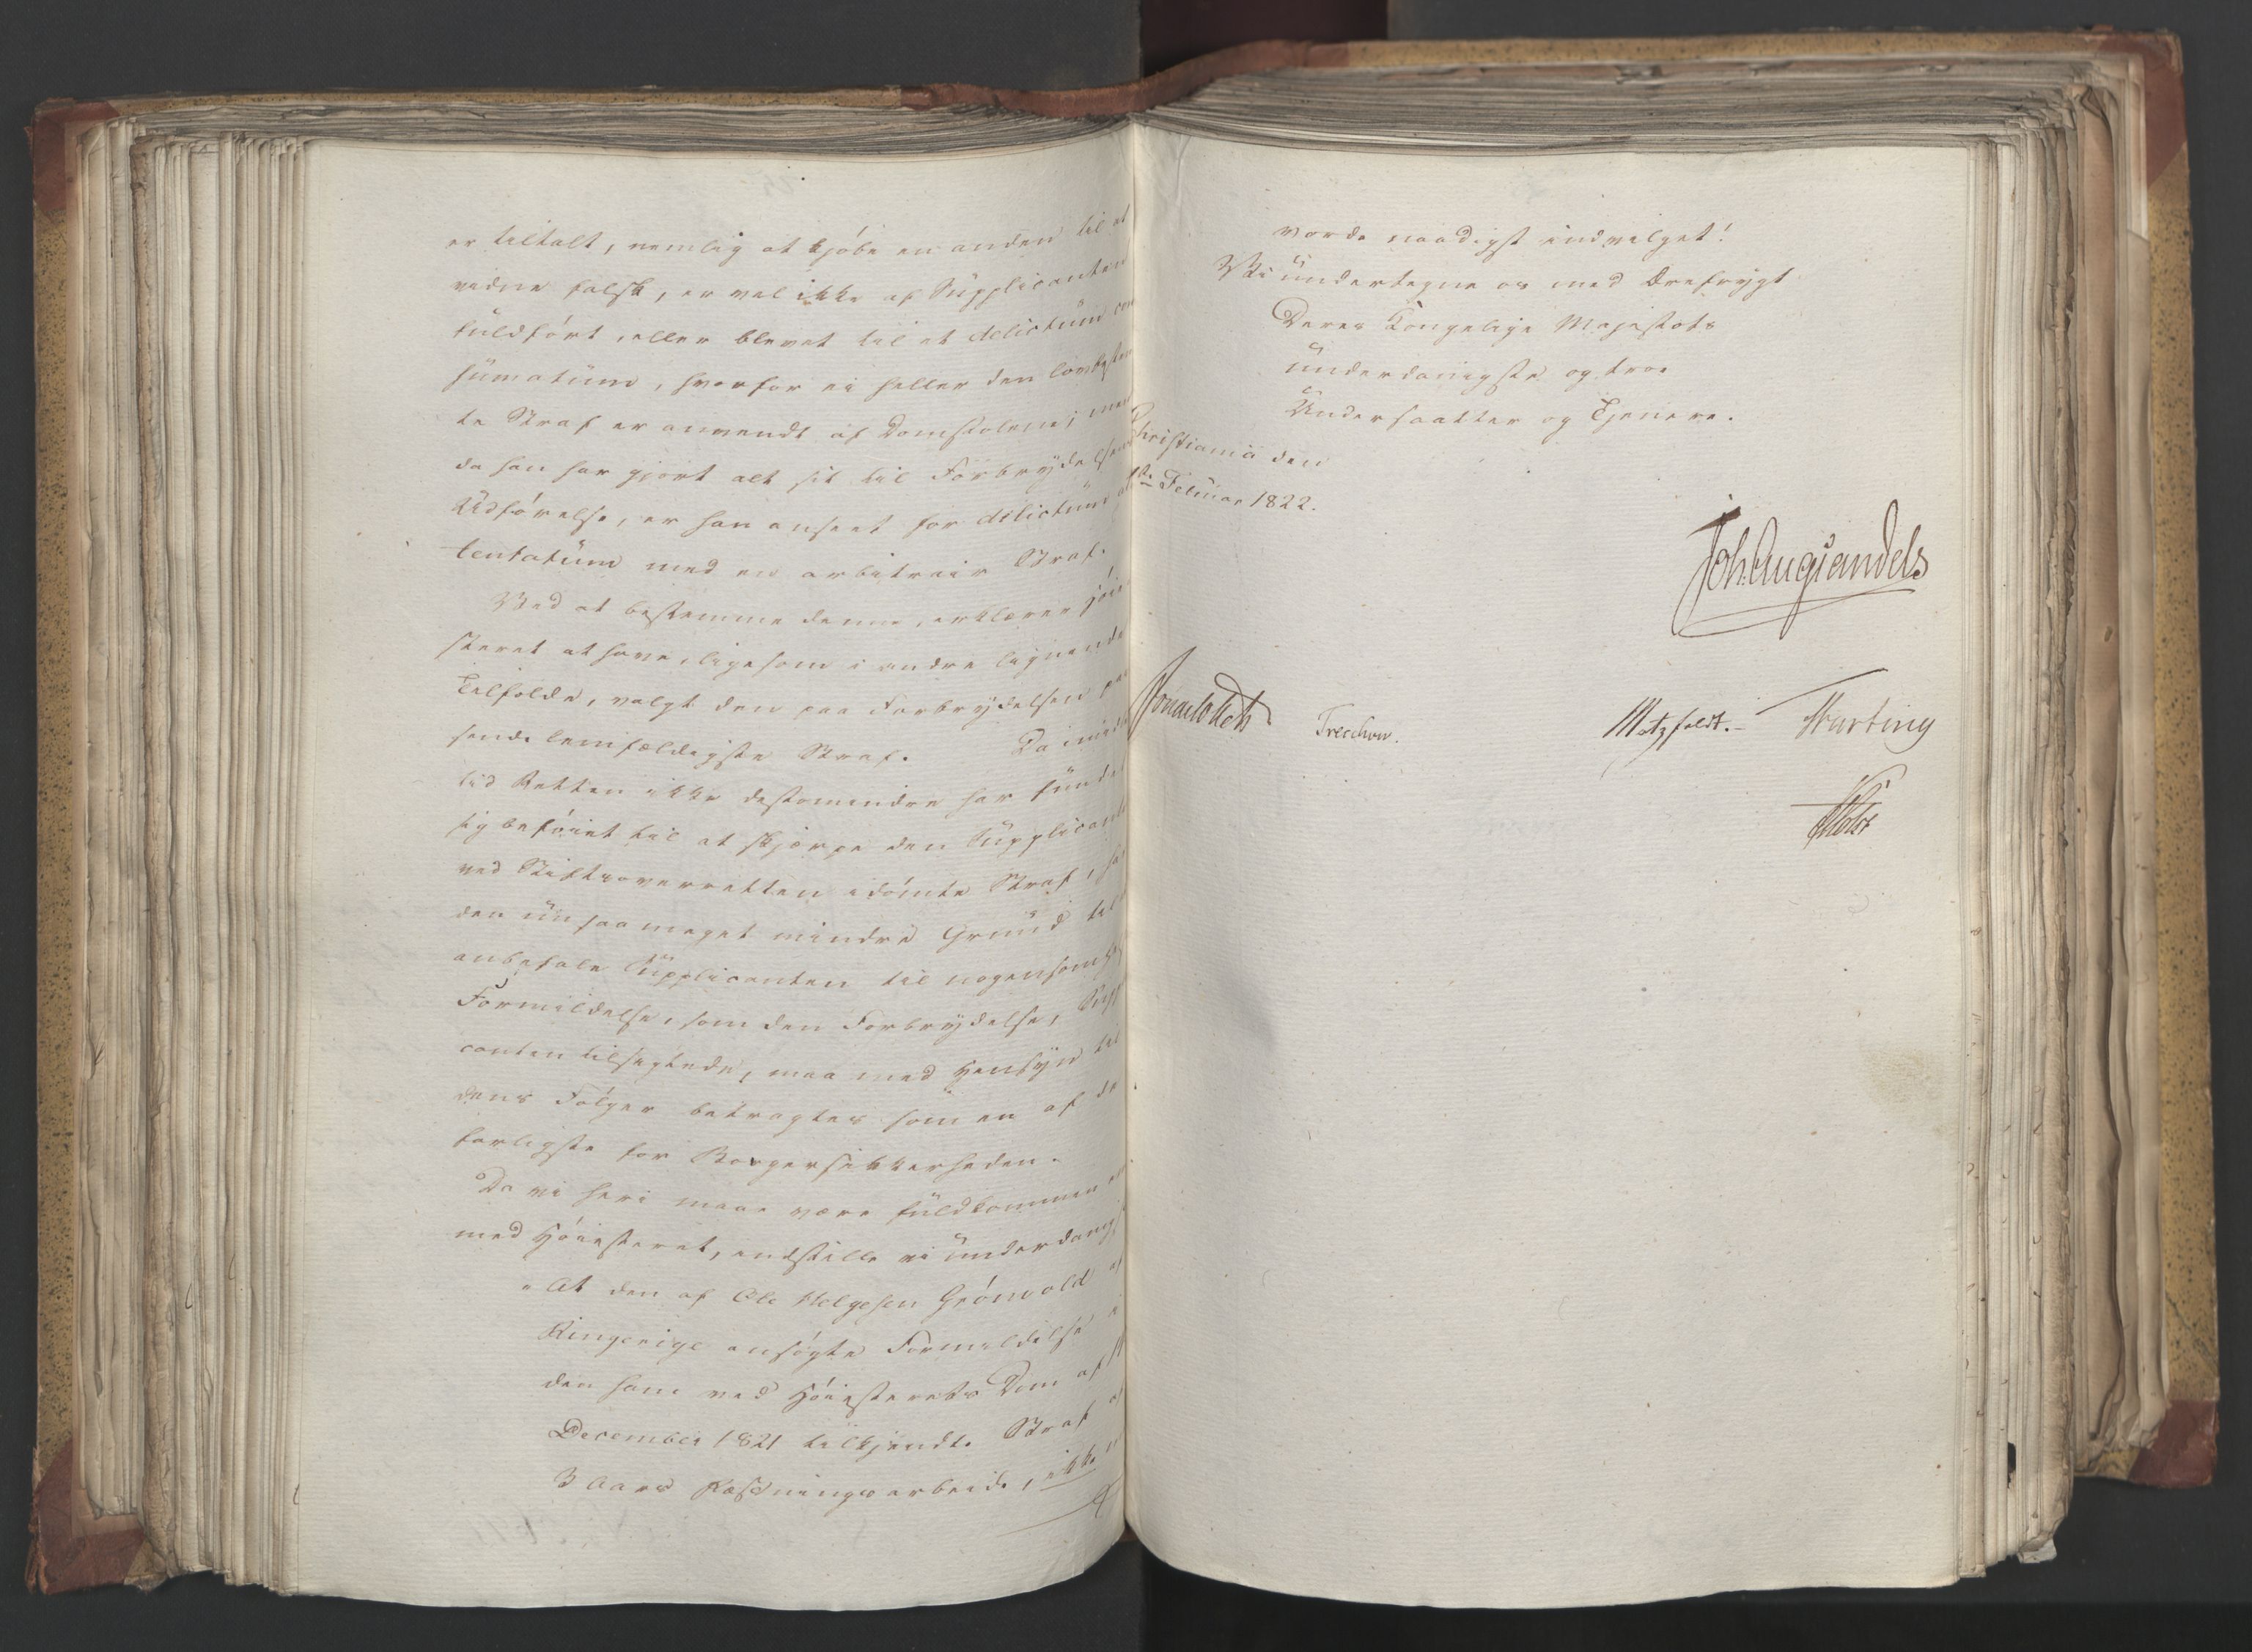 er tiltalt, nemlig at kjöbe en anden til at
vidne falsk, er vel ikke af Supplicanten
fuldfört, eller blevet til et delictum con
sumatum, hvorfor ei heller den lovbestem
te Straf er anvendt af Domstolene; men
da han har gjort alt sit til Forbrydelsens
Udförelse, er han anseet for delictum at
tentatum med en arbitrair Straf.
Ved at bestemme denne, erklærer Höie
steret at have, ligesom i andre lignende
Tilfælde, valgt den paa Forbrydelsen pas
sende lemfældigste Straf. Da imid
lid Retten ikke destomindre har fundet
sig beföiet til at skjærpe den Supplicanten
ved Stiftsoverretten idömte Straf, har
den un saa meget mindre Grund til
anbefale Supplicanten til nogensomhelst
Formildelse, som den Forbrydelse, Suppli
canten tilsigtede, maa med Hensyn til
dens Fölger betragtes som en af de
farligste for Borgersikkerheden.
Da vi heri maae være fuldkommen
med Höiesteret, indstille vi underdanigst
"At den af Ole Helgesen Grönvold af
Ringerige ansögte Formildelse i
den ham ved Höiesterets Dom af
December 1821 tilkjendte Straf af
3 Aars Fæstningsarbeide, ikke
vorde naadigst indvilget!
Vi undertegne os med Ærefrygt
Deres Kongelige Majestæts
underdanigste og troe
Undersaatter og Tjenere.
Christiania den
1ste Februar 1822.
Joh: Aug: Sandels
Sommerhielm
Treschow.
Motzfeldt.
Fasting
Holst